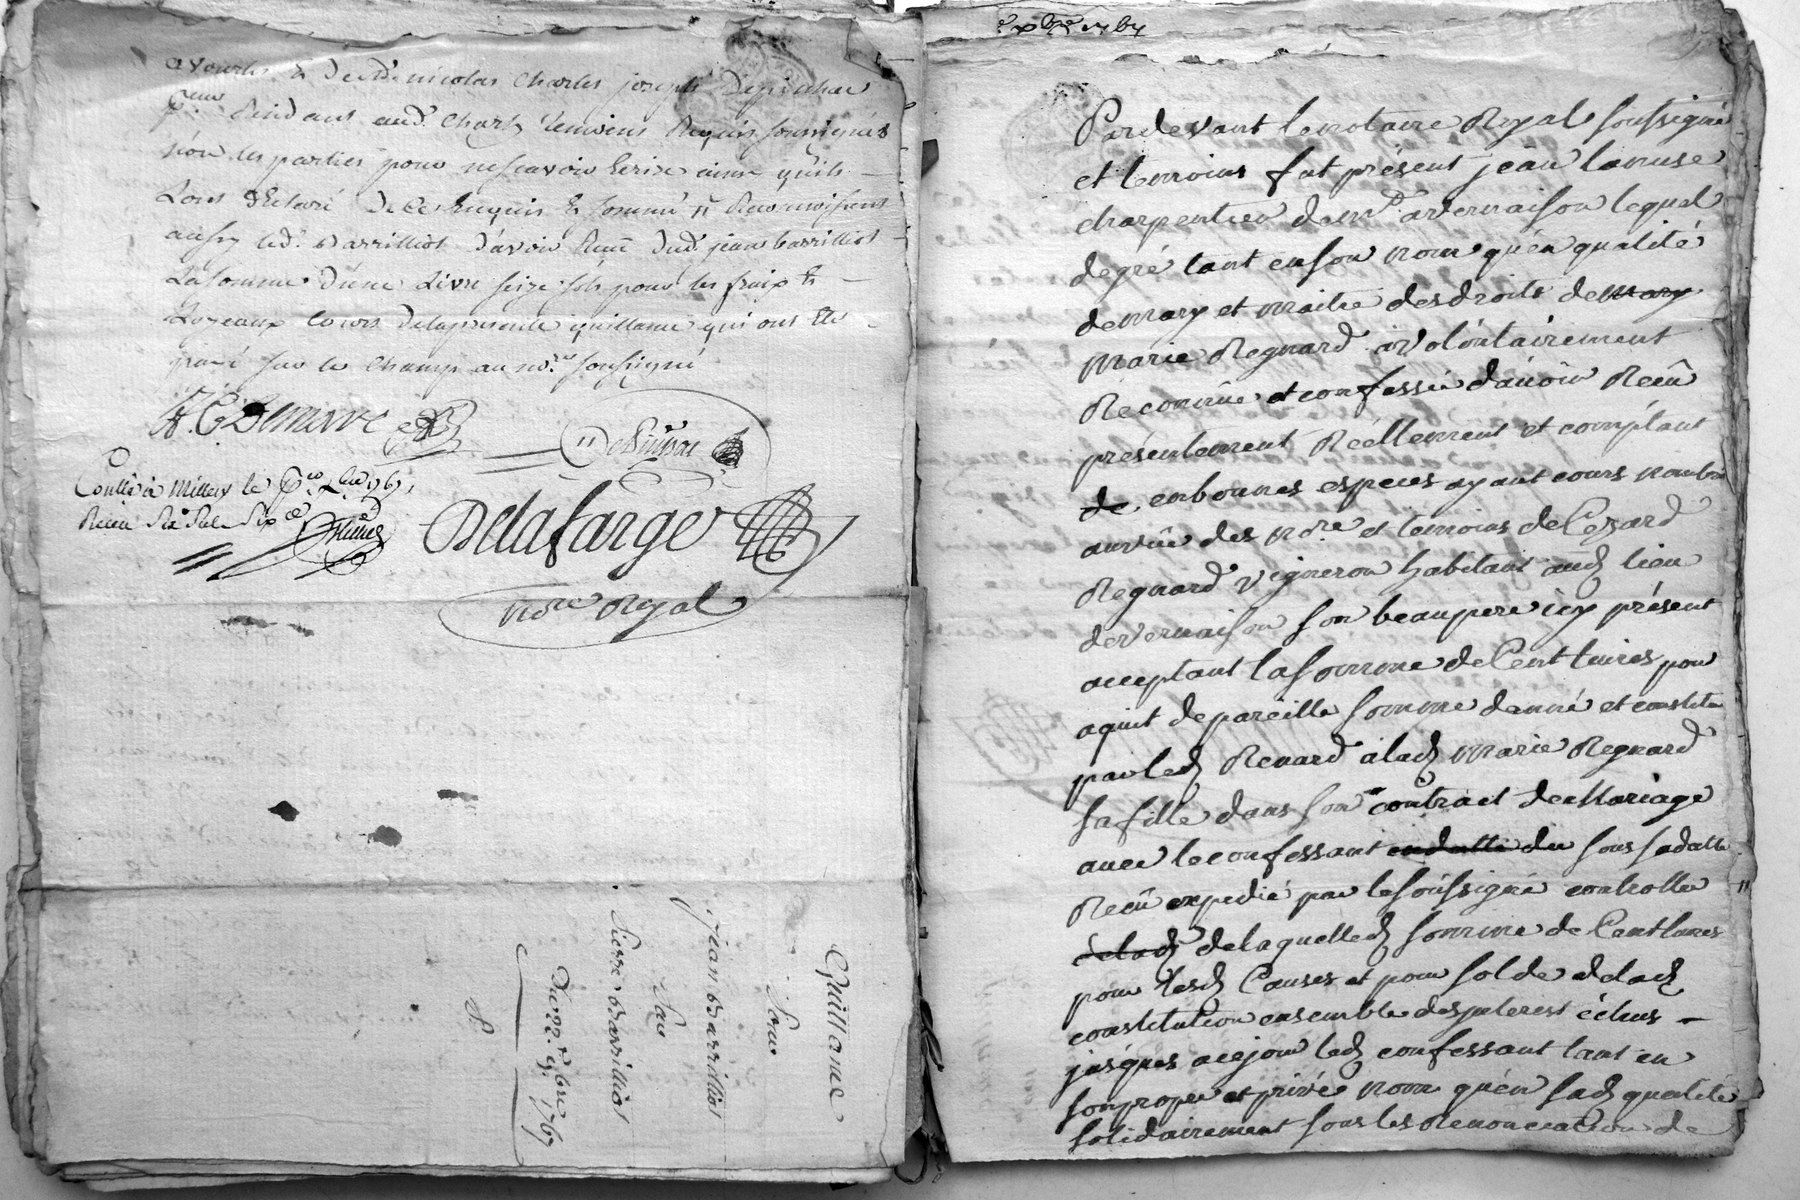 et de Sr. nicolas Charles joseph
Residant aud. Charly temoins Requis soussignés
non les parties pour ne scavoir Ecrire ainsi quils
L'ont declaré de ce Enquis & sommé Reconnoissant
aussy led. Barrilliot d'avoir Reçu dud. jean barrilliot
La somme d'une Livre seize sols pour les fraix &
Loyeaux couts de la presente quittance qui ont été
payé sur le champ au no.re soussigné
Delafarge
no.re Royal
Conllé à Millery le
Reçu
Quittance
Pour
jean Barrilliot
Par
Pierre Barrilliot
Du 22.e 9bre 1767
Pardevant le notaire Royal soussigné
et temoins fut présent jean lamuse
charpentier dem.t a vernaison lequel
de gré tant en son nom qu'en qualité
de mary et maitre des droits de mary
Marie Regnard a volontairement
Reconnû et confessé d'avoir Reçû
présentement Réellement et comptant
de en bonnes especes ayant cours nombré
au vûe des no.re et temoins de Cezard
Regnard vigneron habitant aud. lieu
de vernaison son beaupere icy présent
acceptant la somme de Cent livres pour
aquit de pareille somme donné et constitué
par led. Renard a lad. Marie Regnard
sa fille dans son contract de Mariage
avec le confessant en datte du sous sa datte
Reçû expedié par le soussigné controllé
de laquelle d. somme de Cent livres
pour lesd. Causes et pour solde de lad.
constitution ensemble des jnterest échus
jusques a ce jour led. confessant tant en
son propre et privé nom qu'en sad. qualité
solidairement sous les Renonciation de